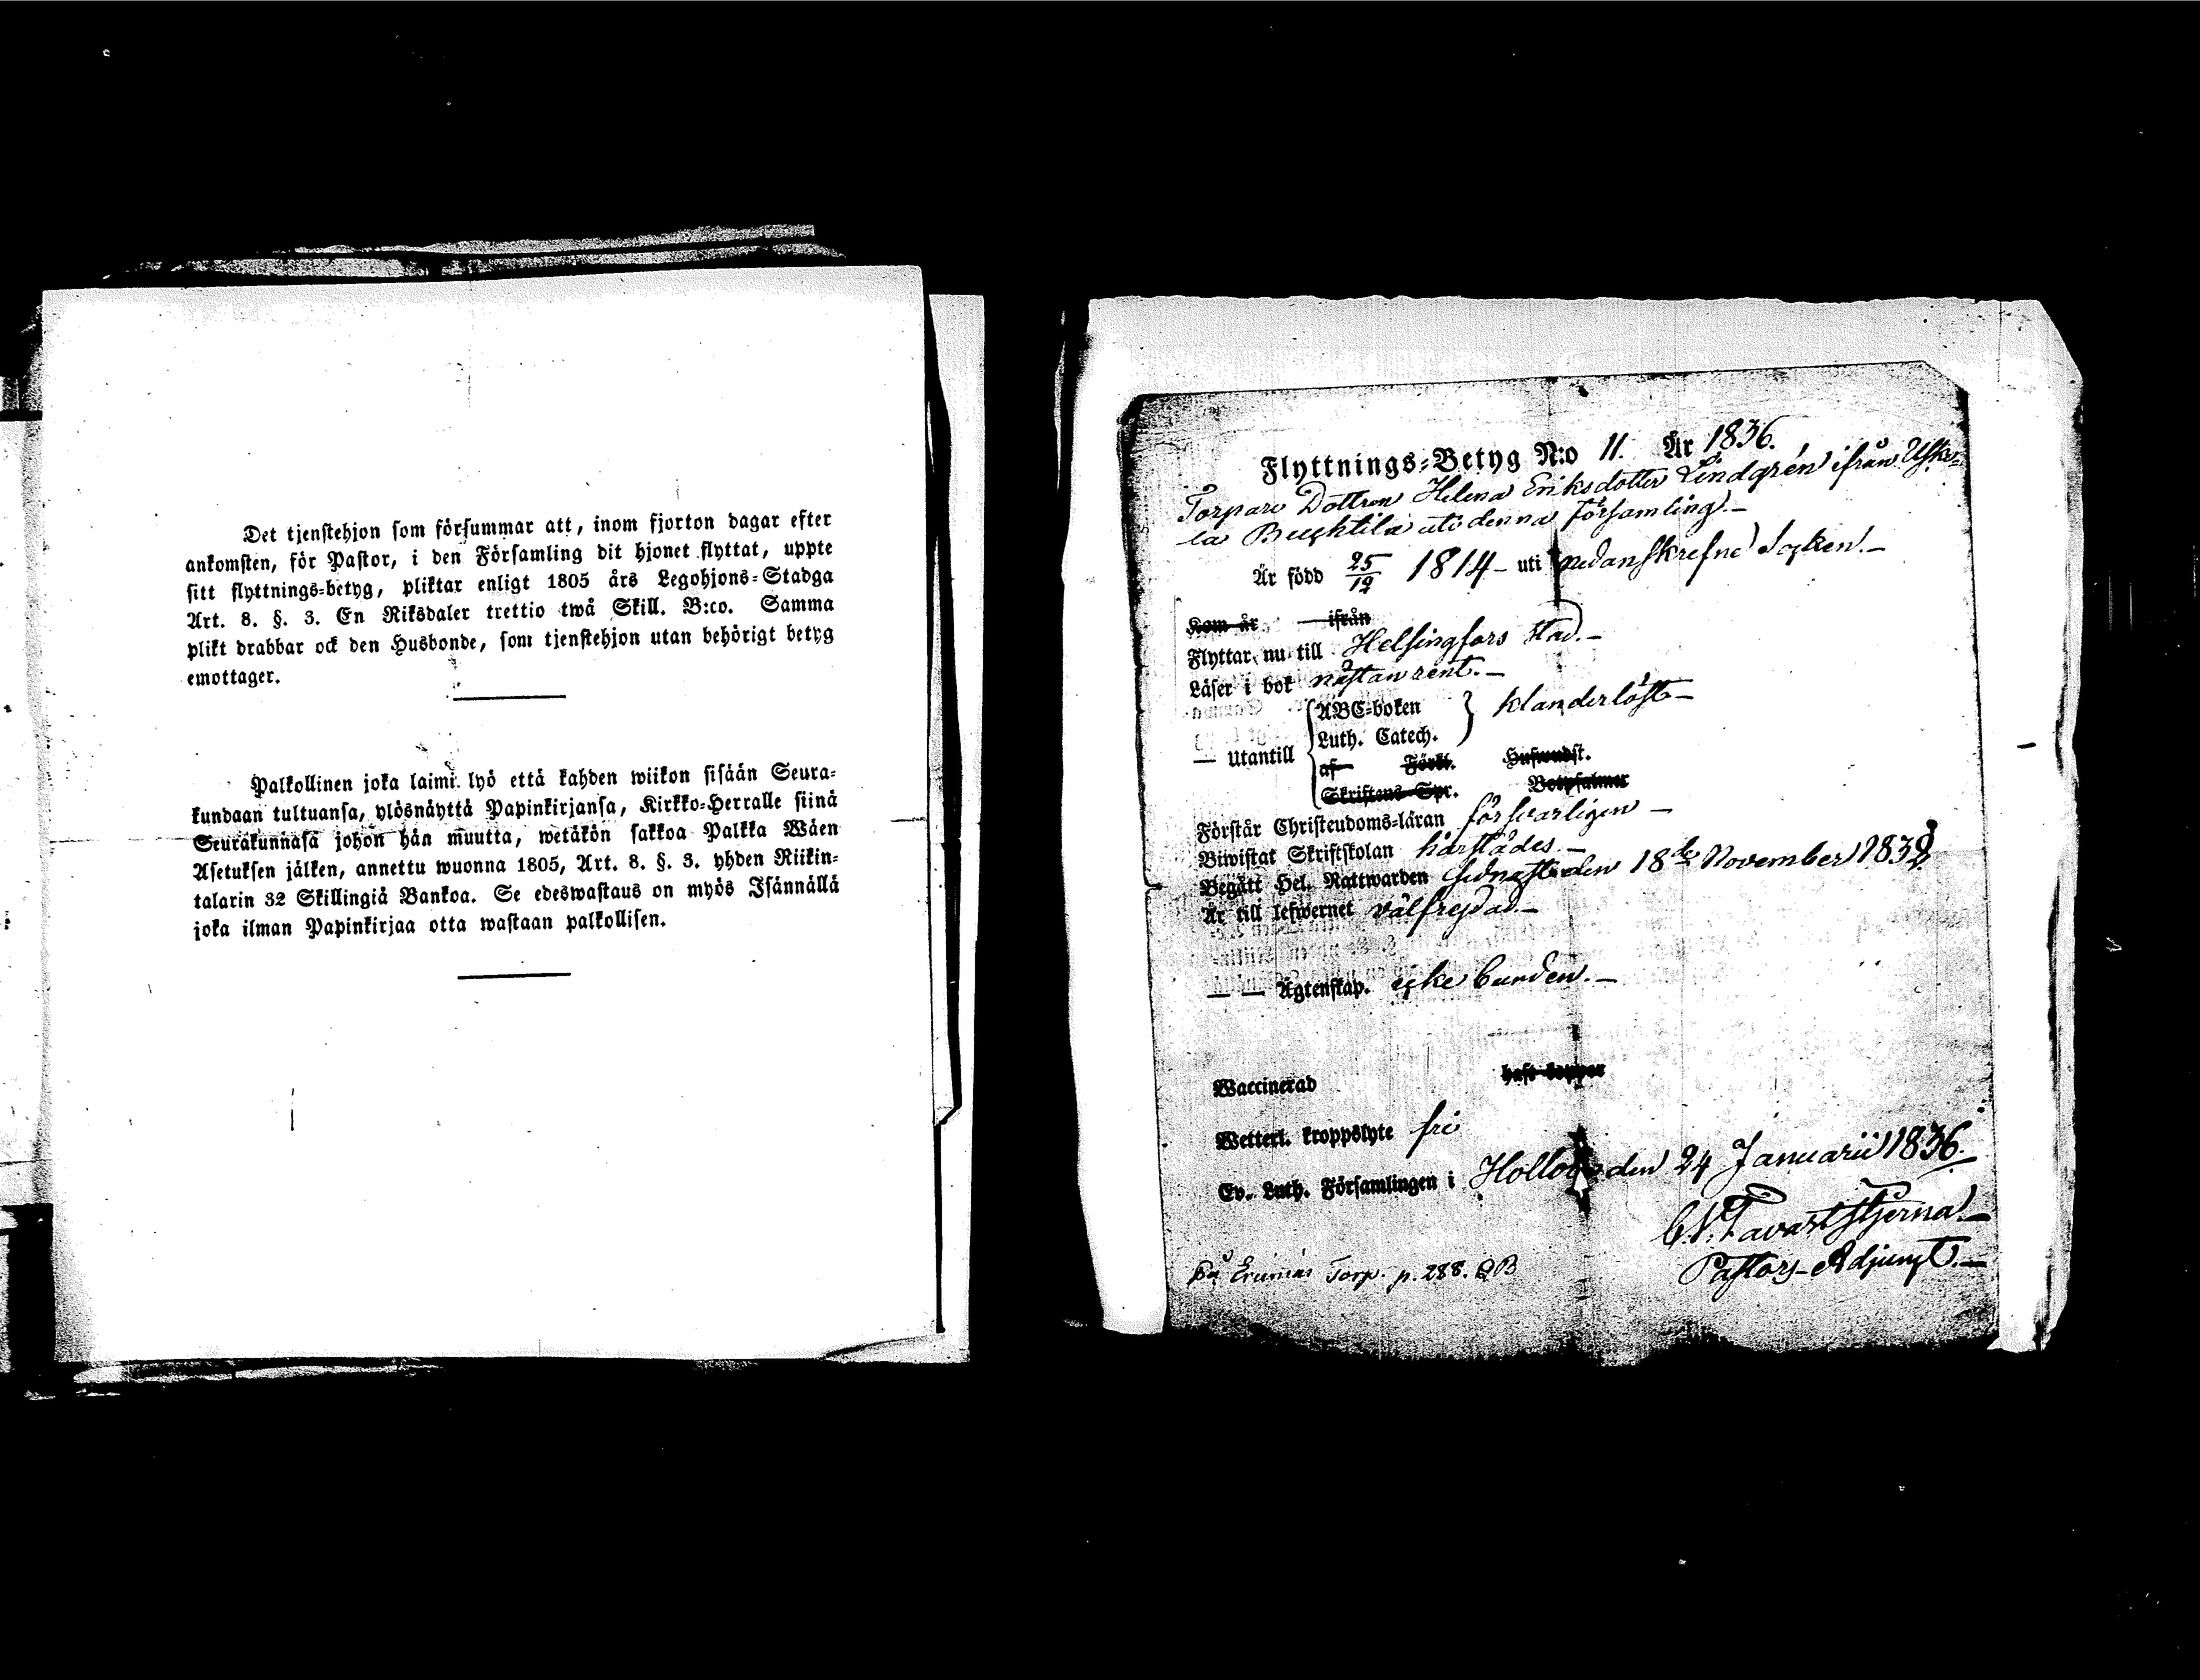 Det tjenstehjon som försummar att, inom fjorton dagar efter
ankomsten, för Pastor, i den Församling dit hjonet flyttat, uppte
sitt flyttnings-betyg, pliktar enligt 1805 års Legohjons-Stadga
Art. 8. §. 3. En Riksdaler trettio twå Skill. B:co. Samma
plikt drabbar ock den Husbonde, som tjenstehjon utan behörigt betyg
emottager.
Palkollinen joka laimi lyö että kahden wiikon sisään Seura-
kundaan tultuansa, ylösnäyttä Papinkirjansa, Kirkko-Herralle siinä
Seurakunnasa johon hän muutta, wetäkön sakkoa Palkka Wäen
Asetuksen jälken, annettu wuonna 1805, Art. 8. §. 3. yhden Riikin-
talarin 32 Skillingiä Bankoa. Se edeswastaus on myös Isännällä
joka ilman Papinkirjaa otta wastaan palkollisen.
Flyttnings-Betyg N:o 11. År 1836.
Torpare Dottren Helena Eriksdotter Lindgrén ifrån Uski-
la uti denna Församling.-
Är född 25/12 1814- uti nedanskrefne Socken.-
Kom år ifrån
Flyttar nu till Helsingfors Stad.-
Läser i bok nästan rent.-
— Utantill ABC-boken klanderlöst-
Luth. Catech.
af Förkl. Husands t.
Skriftens Spr. Botpsalmer
Förstår Christendoms-läran försvarligen -
Biwistat Skriftskolan härstädes.-
Begått Hel. Nattwarden sednast den 18de November 183
Är till lefwernet välfrejdad.-
— — Ägtenskap. icke bunden.-
Waccinerad haft koppor
Wetterl. kroppslyte fri
Ev. Luth. Församlingen i Hollola den 24 Januarii 1836.
Tavaststjerna.-
Pastors-Adjunct.-
på Torp. p. 288.